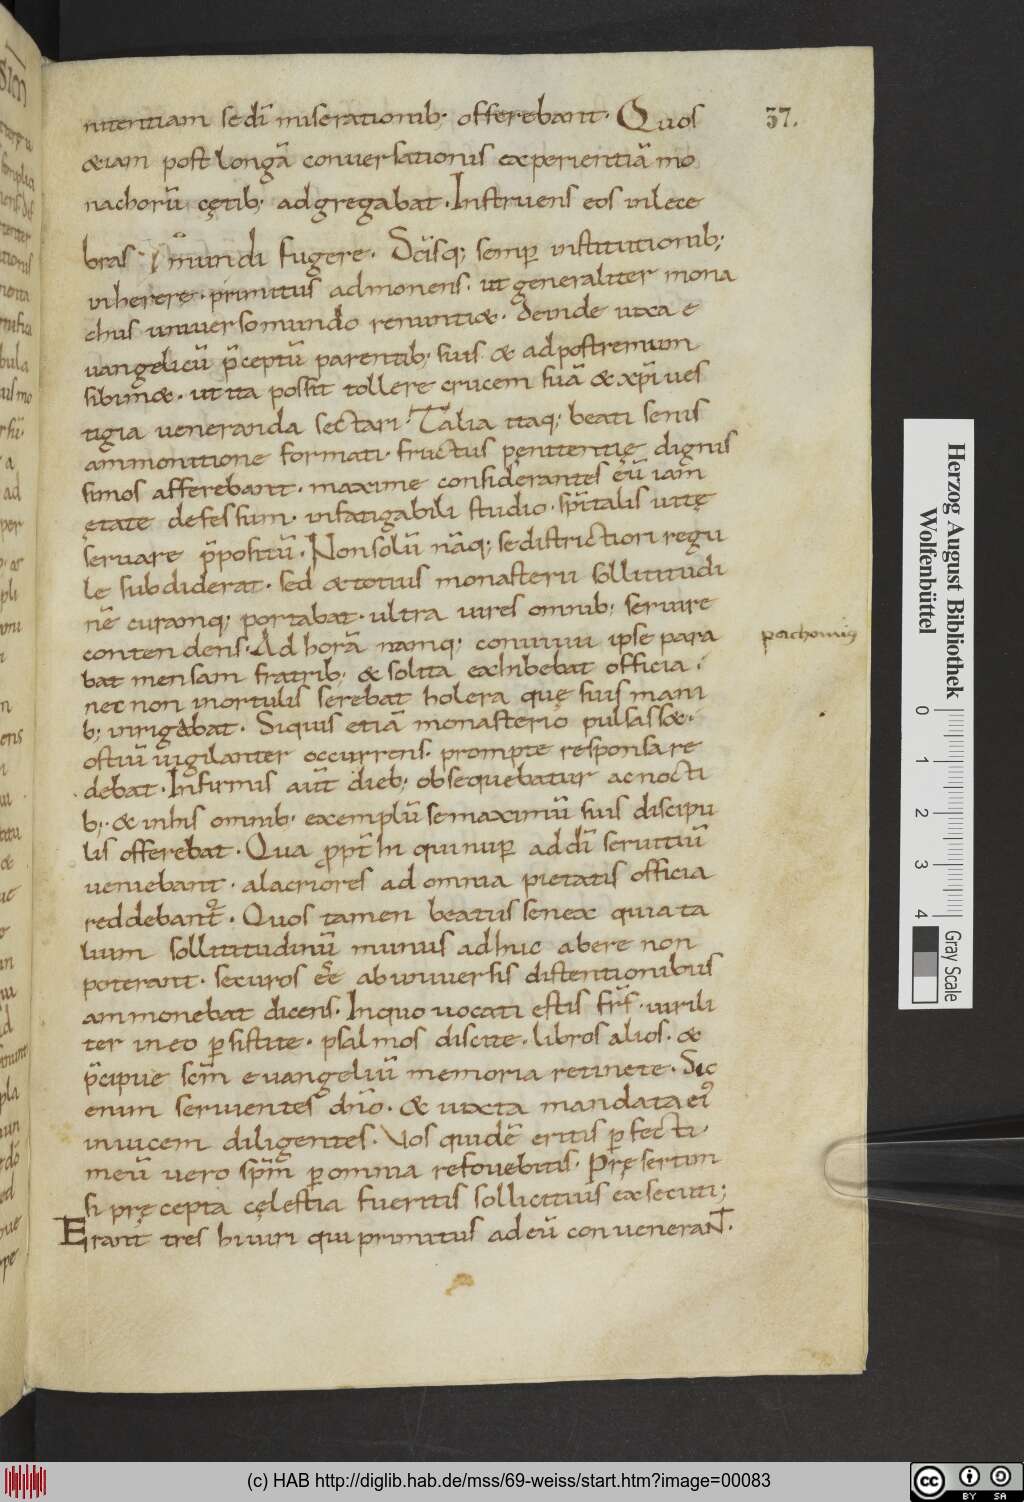 37.
nitentiam se dī miserationib; offerebant. Quos
&iam post longā conversationis experientiā mo
nachorū cętib; adgregabat. Instruens eos inlece
bras mundi fugere. Scīsq; semp̄ institutionib;
inherere. primitus admonens. ut generaliter mona
chus universo mundo renunti&. deinde iuxta e
vangelicū p̄ceptū parentib; suis. & ad postremum
sibim&. ut ita possit tollere crucem suā & xp̄i ves
tigia veneranda sectari. Talia itaq; beati senis
ammonitione formati. fructus penitentię dignis
simos afferebant. maxime considerantes eū iam
ętate defessum. infatigabili studio. spīritalis vitę
servare p̄positū. Non solū nāq; se districtiori regu
le subdiderat. sed & totius monasterii sollicitudi
nē curamq; portabat. ultra vires omnib; servire
contendens. Ad horā namq; convivii ipse para
pachomius
bat mensam fratrib; & solita exhibebat officia.
nec non in ortulis serebat holera quę suis mani
b; inrigabat. Siquis etiā monasterio pulsass&.
ostiū vigilanter occurrens. prompte responsa re
debat. Infirmis aūt dieb; obsequebatur ac nocti
b; & in his omnib; exemplū se maximū suis discipu
lis offerebat. Qua ppt̄ hi qui nup̄ ad dī servitiū
veniebant. alacriores ad omnia pietatis officia
reddebant̄. Quos tamen beatus senex quia ta
lium sollicitudinū munus adhuc abere non
poterant. securos eē ab universis distentionibus
ammonebat dicens. In quo vocati estis frs̄. virili
ter in eo p̄sistite. psalmos discite. libros alios. &
p̄cipue scm̄ evangeliū memoria retinete. Sic
enim servientes dn̄o. & iuxta mandata ei'
invicem diligentes. Vos quidē eritis p̄fecti.
meū vero spm̄ p̄ omnia refovebitis. Pręsertim
si pręcepta cęlestia fueritis sollicitius exsecuti;
Erant tres hi viri qui primitus ad eū convenerant.
Herzog August Bibliothek
Wolfenbüttel
0 1 2 3 4
Gray Scale
(c) HAB http://diglib.hab.de/mss/69-weiss/start.htm?image=00083
cc BY SA